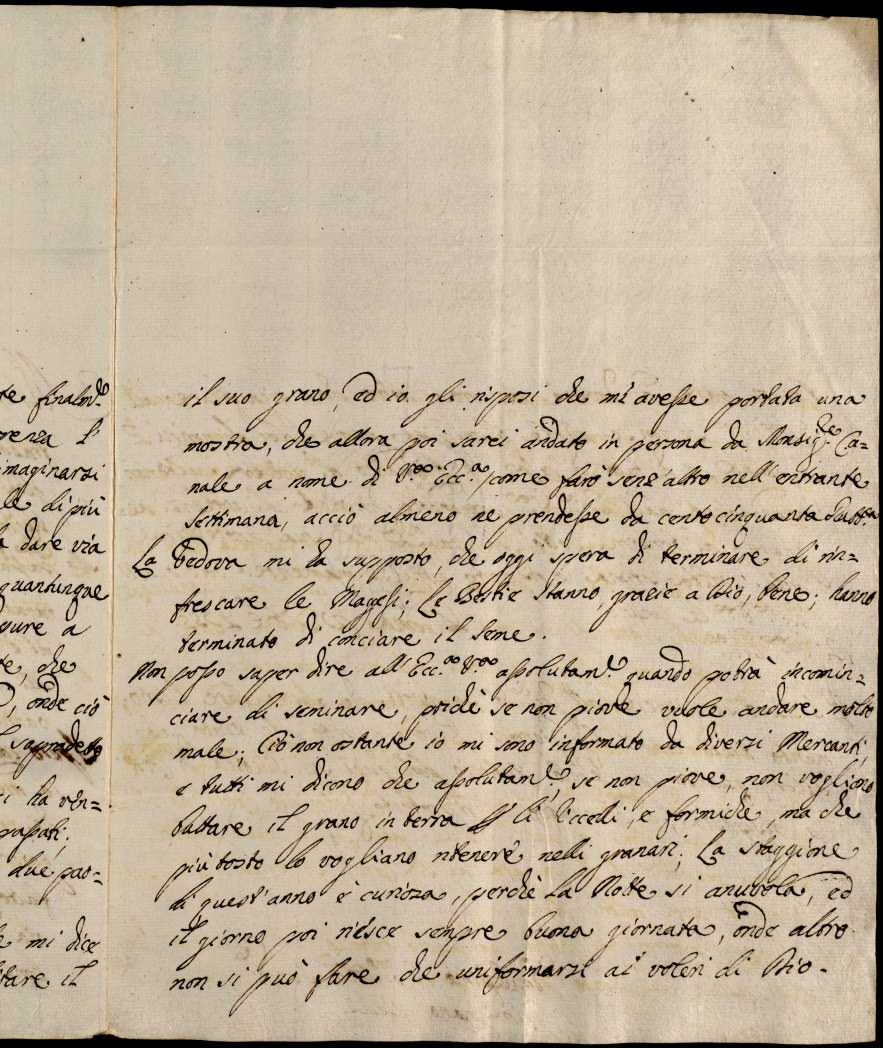 te finalm.te
renza l'
imaginarsi
le di più
a dare via
quantunque
pure a
te, che
onde ciò
l sopradetto
si ha ven=
passati;
due pao=
mi dice
tare il
il suo grano, ed io gli risposi che m'avesse portata una
mostra, che allora poi sarei andato in persona da Monsig.re Ca=
nale a nome di V.ra Ecc.a, come farò senz'altro nell'entrante
settimana, acciò almeno ne prendesse da cento cinquanta
La Vedova mi ha supposto, che oggi spera di terminare di rin=
frescare le Magesi; Le Bestie stanno, grazie a Dio, bene; hanno
terminato di conciare il seme.
Non posso saper dire all'Ecc.a V.ra assolutam.te quando potrà incomin=
ciare di seminare, poiché se non piove vuole andare molto
male; Ciò non ostante io mi sono informato da diversi Mercanti,
e tutti mi dicono che assolutam.te, se non piove, non vogliono
buttare il grano in terra p li Uccelli, e formiche, ma che
più tosto lo vogliano ritenere nelli granari; La staggione
di quest'anno è curioza, perchè la Notte si anuvola, ed
il giorno poi riesce sempre buona giornata, onde altro
non si può fare che uniformarsi ai voleri di Dio.